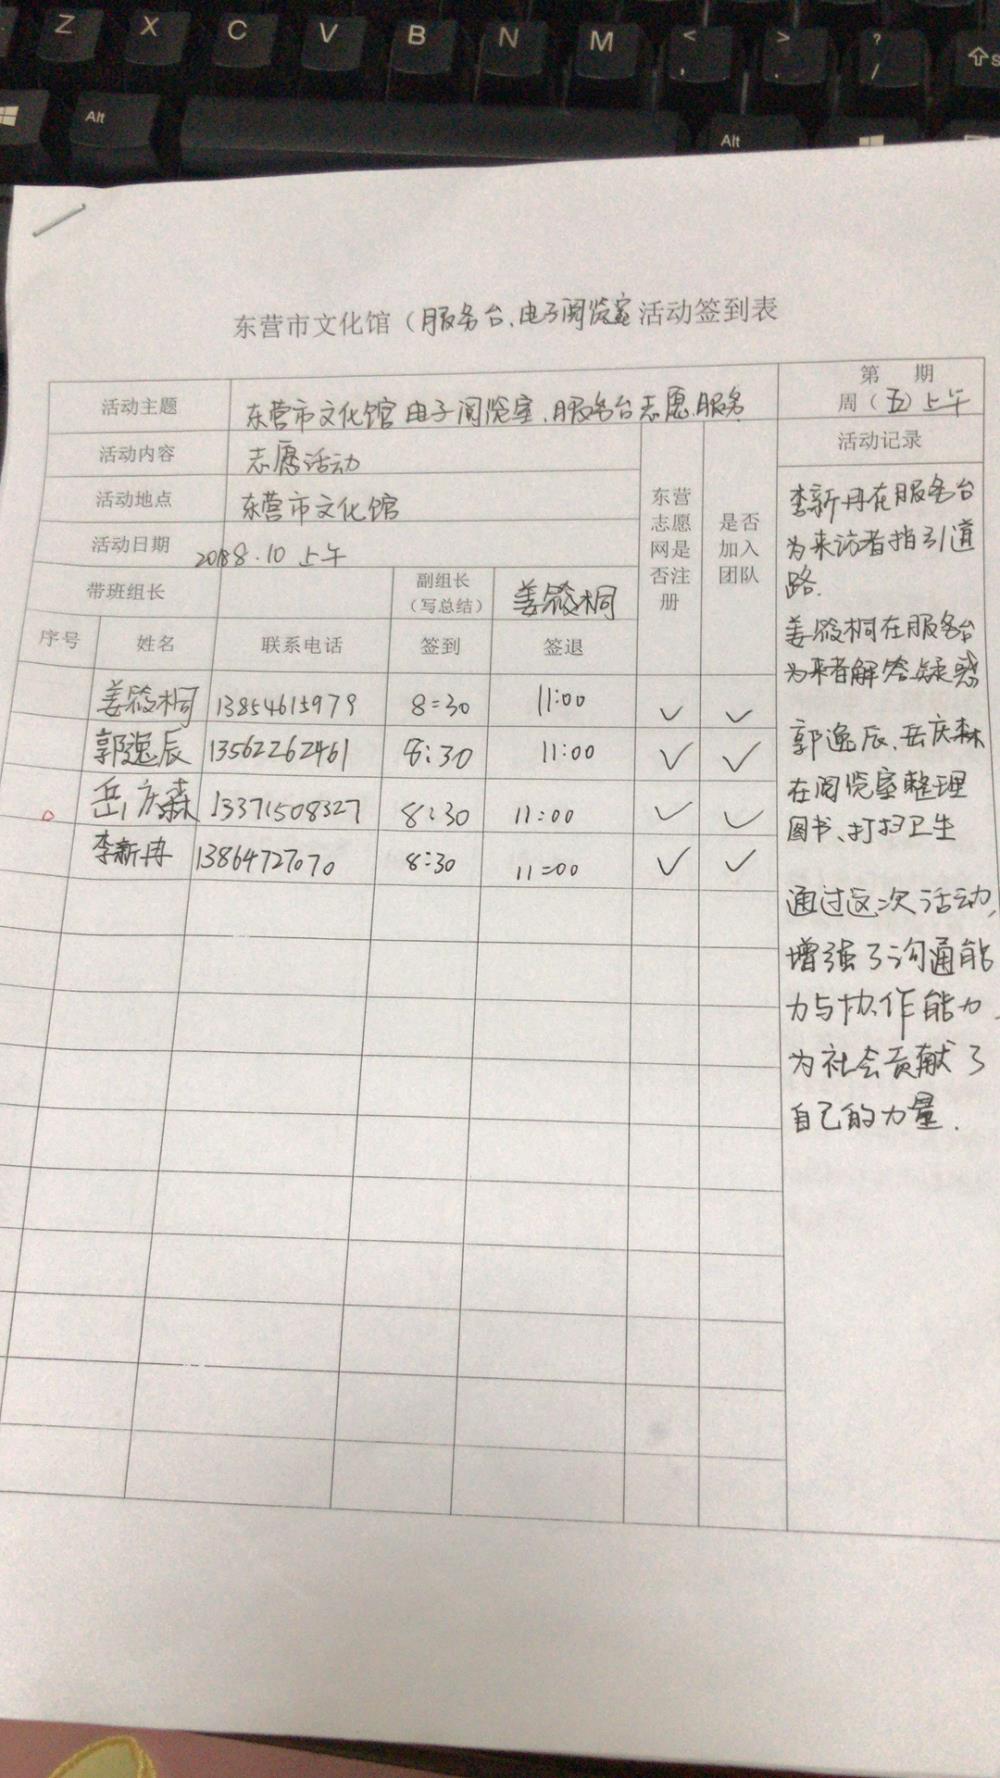 Z X C V B N M < , > . ? /
Alt Alt
东营市文化馆（服务台、电子阅览室活动签到表
活动主题 东营市文化馆电子阅览室、服务台志愿服务
第 期
周（五）上午
活动内容 志愿活动
活动地点 东营市文化馆
活动日期 2018.8.10 上午
带班组长
副组长
（写总结）
姜筱桐
东营
志愿
网是
否注
册
是否
加入
团队
活动记录
序号 姓名 联系电话 签到 签退
姜筱桐 13854615979 8:30 11:00 ✓ ✓
郭逸辰 13562262461 8:30 11:00 ✓ ✓
岳庆森 13371508327 8:30 11:00 ✓ ✓
李新冉 13864727070 8:30 11:00 ✓ ✓
李新冉在服务台
为来访者指引道
路.
姜筱桐在服务台
为来者解答疑惑
郭逸辰、岳庆森
在阅览室整理
图书、打扫卫生
通过这次活动,
增强了沟通能
力与协作能力、
为社会贡献了
自己的力量.